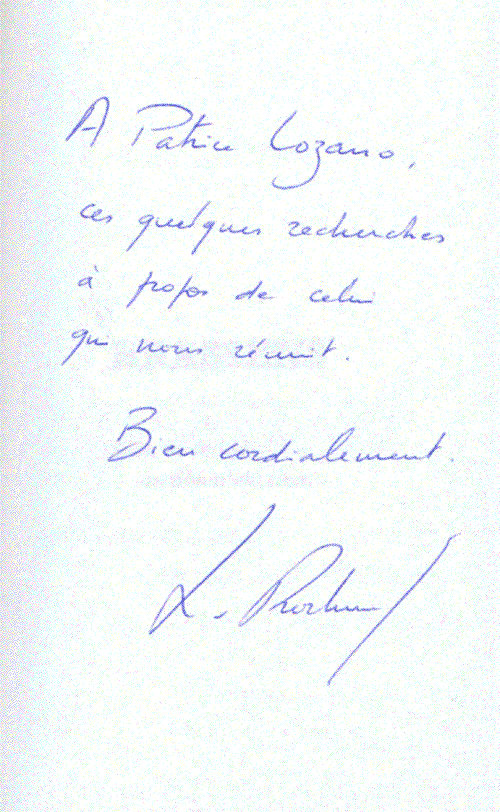 A Patrice Lozano,
ces quelques recherches
à propos de celui
qui nous réunit.
Bien cordialement.
L.